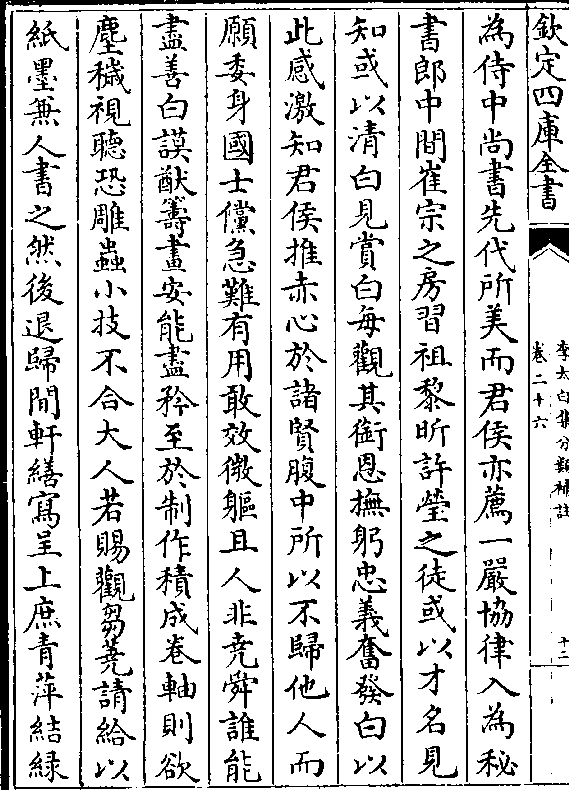 欽定四庫全書
李太白集分類補註
卷二十六
十二
為侍中尚書先代所美而君侯亦薦一嚴協律入為秘
書郎中間崔宗之房習祖黎昕許瑩之徒或以才名見
知或以清白見賞白每觀其銜恩撫躬忠義奮發白以
此感激知君侯推赤心於諸賢腹中所以不歸他人而
願委身國士儻急難有用敢效微軀且人非堯舜誰能
盡善白謨猷籌畫安能盡矜至於制作積成卷軸則欲
塵穢視聽恐雕蟲小技不合大人若賜觀芻蕘請給以
紙墨兼人書之然後退歸閒軒繕寫呈上庶青萍結緑